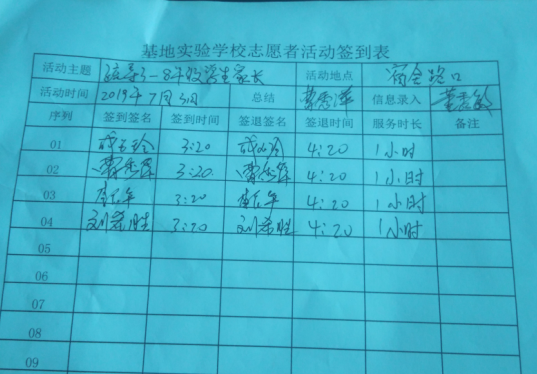 基地实验学校志愿者活动签到表
活动主题 疏导3-8年级学生家长 活动地点 宿舍路口
活动时间 2019年7月3日 总结 信息录入
序列 签到签名 签到时间 签退签名 签退时间 服务时长 备注
01 3:20 4:20 1小时
02 3:20 4:20 1小时
03 3:20 4:20 1小时
04 刘希胜 3:20 刘希胜 4:20 1小时
05
06
07
08
09